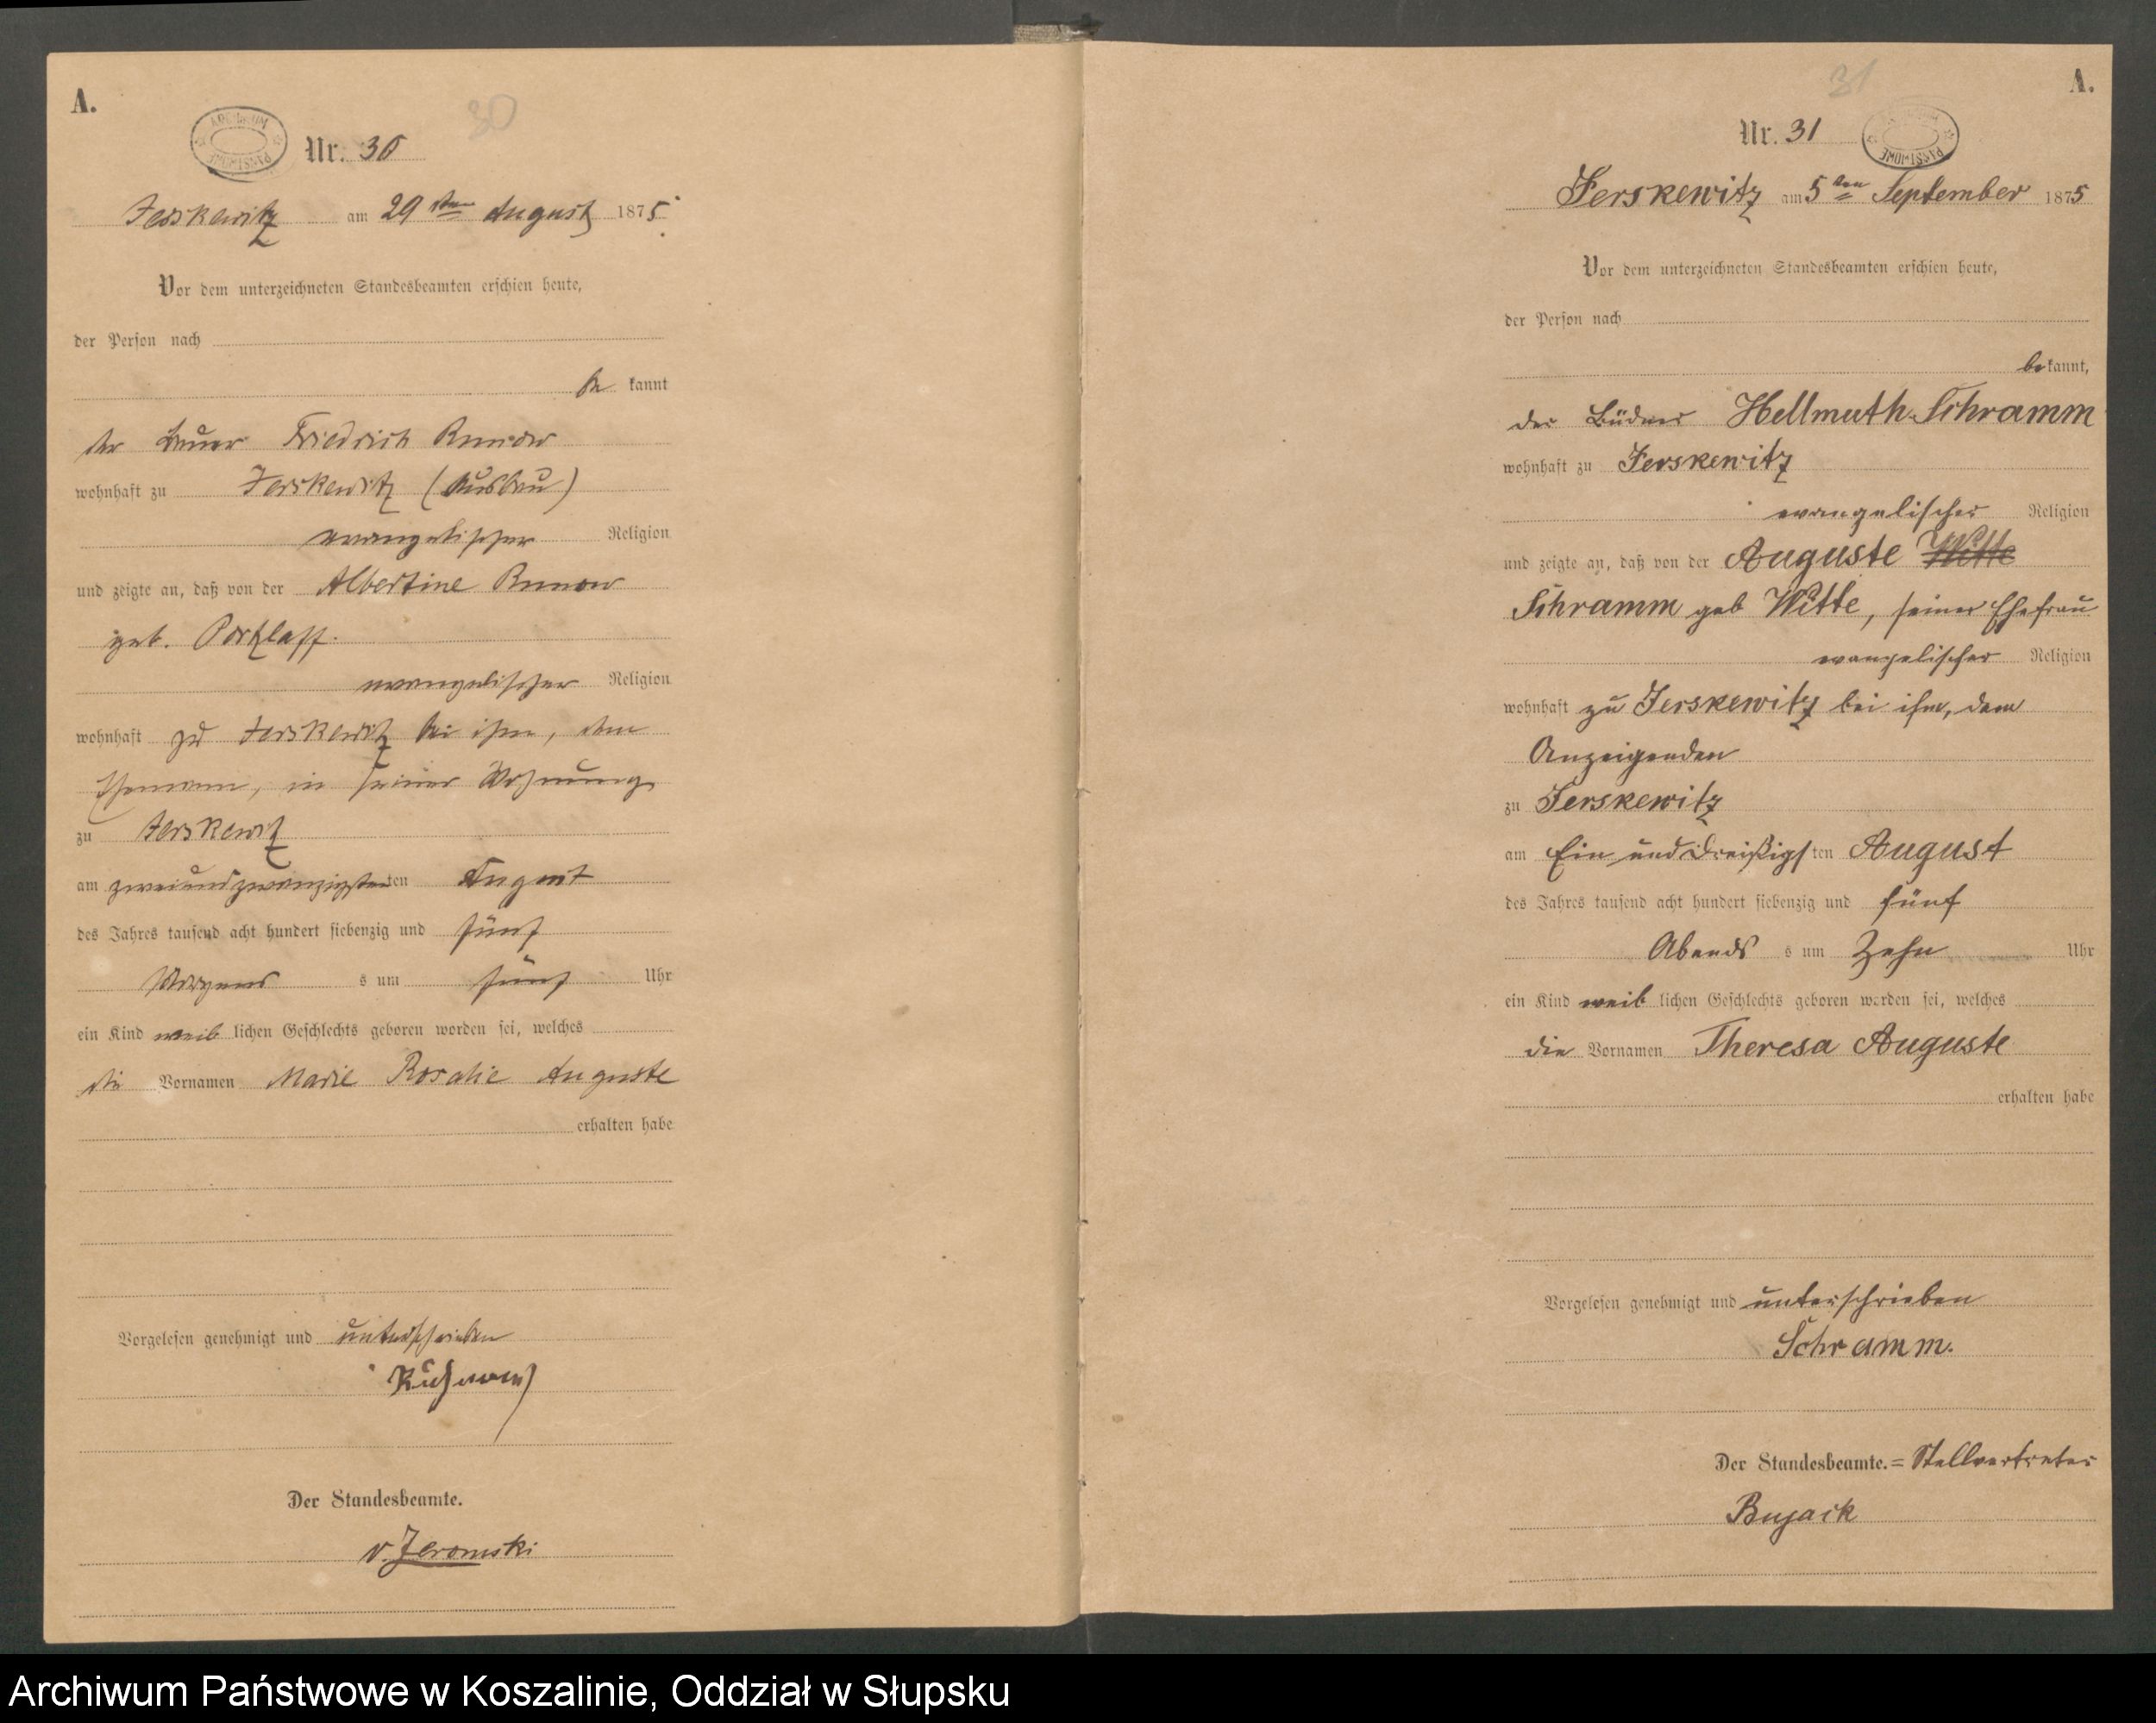 A.
30
ARCHIWUM PAŃSTWOWE
Nr. 30
Jerskewitz am 29 ten August 1875.
Vor dem unterzeichneten Standesbeamten erschien heute,
der Person nach
be kannt
der Bauer Friedrich Runow
wohnhaft zu Jerskewitz (Ausbau)
evangelischer Religion
und zeigte an, daß von der Albertine Runow
geb.
evangelischer Religion
wohnhaft zu Jerskewitz bei ihm, dem
Ehemann, in seiner Wohnung
zu Jerskewitz
am zweiundzwanzigsten ten August
des Jahres tausend acht hundert siebenzig und fünf
Morgens s um fünf Uhr
ein Kind weib lichen Geschlechts geboren worden sei, welches
die Vornamen Marie Rosalie Auguste
erhalten habe
Vorgelesen genehmigt und unterschrieben
Der Standesbeamte.
v. Jeromski
A.
31
Nr. 31
PAŃSTWOWE
Jerskewitz am 5 ten September 1875
Vor dem unterzeichneten Standesbeamten erschien heute,
der Person nach
be kannt,
der Büdner Hellmuth Schramm
wohnhaft zu Jerskewitz
evangelischer Religion
und zeigte an, daß von der Auguste Witte
Schramm geb Witte, seiner Ehefrau
evangelischer Religion
wohnhaft zu Jerskewitz bei ihm, dem
Anzeigenden
zu Jerskewitz
am Ein und Dreißigs ten August
des Jahres tausend acht hundert siebenzig und fünf
Abends s um Zehn Uhr
ein Kind weib lichen Geschlechts geboren worden sei, welches
die Vornamen Theresa Auguste
erhalten habe
Vorgelesen genehmigt und unterschrieben
Schramm.
Der Standesbeamte. = Stellvertreter
Bujack
Archiwum Państwowe w Koszalinie, Oddział w Słupsku